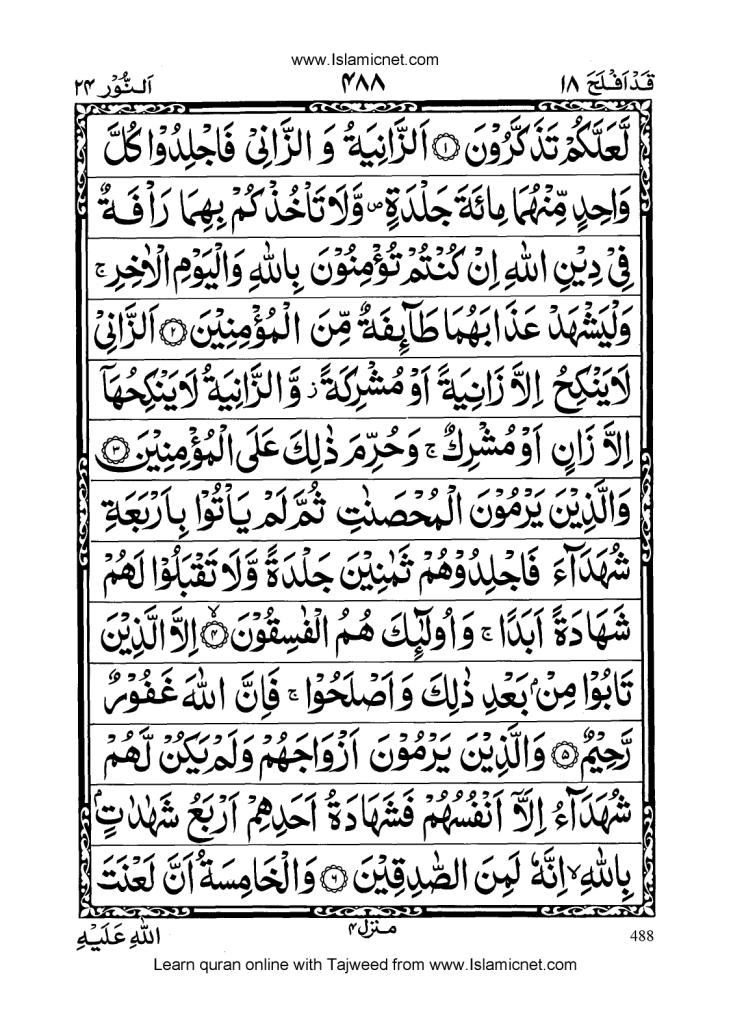 www.Islamicnet.com
قَدْ اَفْلَحَ ۱۸ ۴۸۸ اَلنُّوْر ۲۴
لَّعَلَّكُمْ تَذَكَّرُوْنَ ۝۱ اَلزَّانِيَةُ وَ الزَّانِيْ فَاجْلِدُوْا كُلَّ
وَاحِدٍ مِّنْهُمَا مِائَةَ جَلْدَةٍ ۪ وَّلَا تَاْخُذْكُمْ بِهِمَا رَاْفَةٌ
فِيْ دِيْنِ اللّٰهِ اِنْ كُنْتُمْ تُؤْمِنُوْنَ بِاللّٰهِ وَالْيَوْمِ الْاٰخِرِ ۚ
وَلْيَشْهَدْ عَذَابَهُمَا طَآئِفَةٌ مِّنَ الْمُؤْمِنِيْنَ ۝۲ اَلزَّانِيْ
لَا يَنْكِحُ اِلَّا زَانِيَةً اَوْ مُشْرِكَةً ز وَّ الزَّانِيَةُ لَا يَنْكِحُهَاۤ
اِلَّا زَانٍ اَوْ مُشْرِكٌ ۚ وَحُرِّمَ ذٰلِكَ عَلَى الْمُؤْمِنِيْنَ ۝۳
وَالَّذِيْنَ يَرْمُوْنَ الْمُحْصَنٰتِ ثُمَّ لَمْ يَاْتُوْا بِاَرْبَعَةِ
شُهَدَآءَ فَاجْلِدُوْهُمْ ثَمٰنِيْنَ جَلْدَةً وَّلَا تَقْبَلُوْا لَهُمْ
شَهَادَةً اَبَدًا ۚ وَاُولٰٓئِكَ هُمُ الْفٰسِقُوْنَ ۝۴ۙ اِلَّا الَّذِيْنَ
تَابُوْا مِنْۢ بَعْدِ ذٰلِكَ وَاَصْلَحُوْا ۚ فَاِنَّ اللّٰهَ غَفُوْرٌ
رَّحِيْمٌ ۝۵ وَالَّذِيْنَ يَرْمُوْنَ اَزْوَاجَهُمْ وَلَمْ يَكُنْ لَّهُمْ
شُهَدَآءُ اِلَّاۤ اَنْفُسُهُمْ فَشَهَادَةُ اَحَدِهِمْ اَرْبَعُ شَهٰدٰتٍۭ
بِاللّٰهِ ۙ اِنَّهٗ لَمِنَ الصّٰدِقِيْنَ ۝۶ وَالْخَامِسَةُ اَنَّ لَعْنَتَ
اللّٰهِ عَلَيْهِ منزل ۴ 488
Learn quran online with Tajweed from www.Islamicnet.com